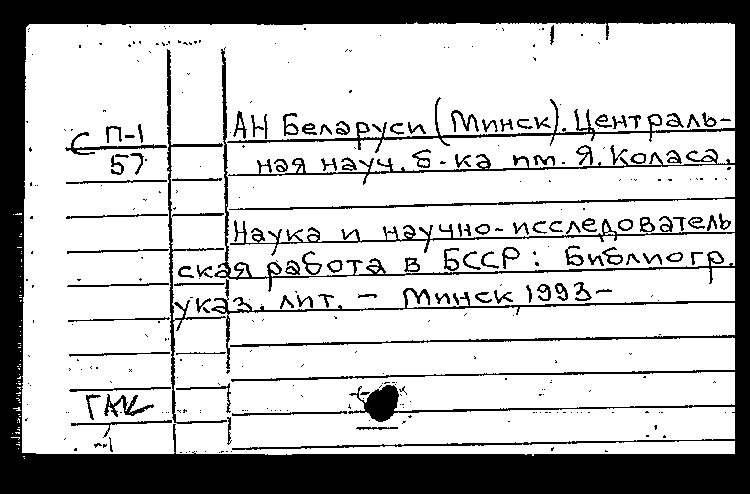 С П-1
57
АН Беларуси (Минск). Централь-
ная науч. б-ка им. Я. Коласа.
Наука и научно-исследователь
ская работа в БССР: Библиогр.
указ. лит. – Минск, 1993–
ГАК